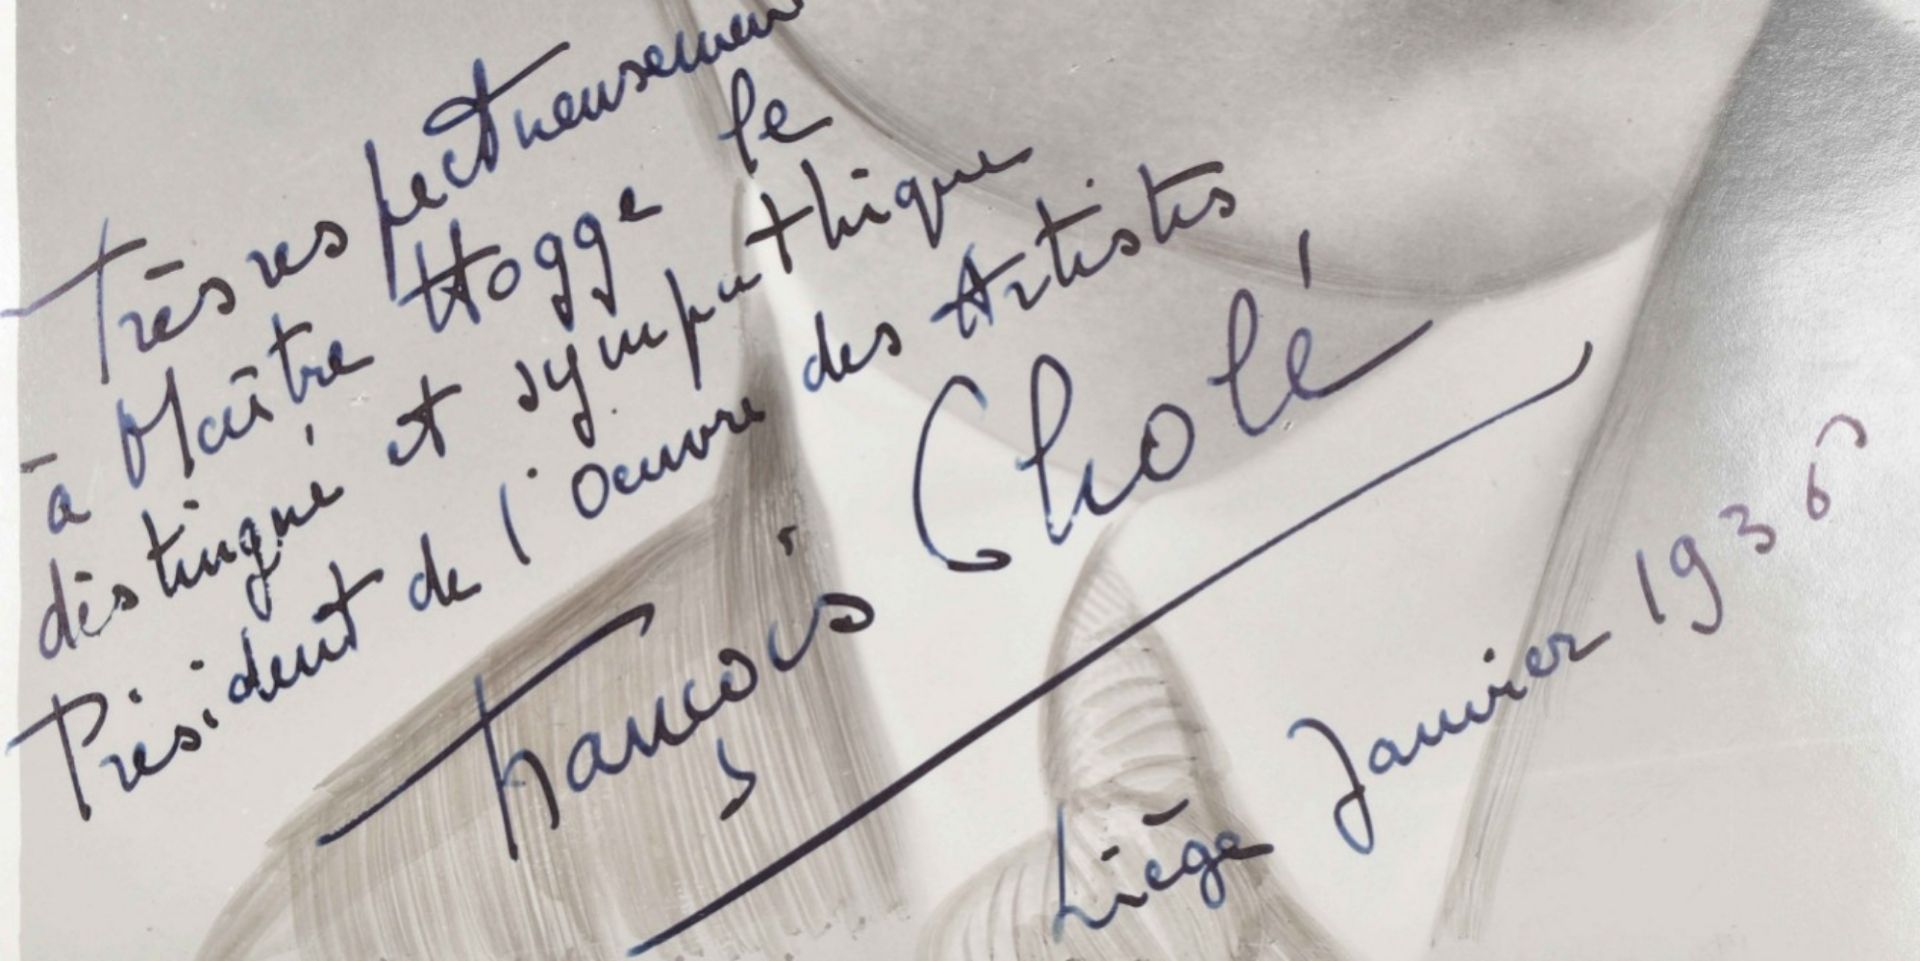 Très respectueusement
à Maître Hogge le
distingué et sympathique
Président de l'Oeuvre des Artistes
François Cholé
Liége Janvier 1936